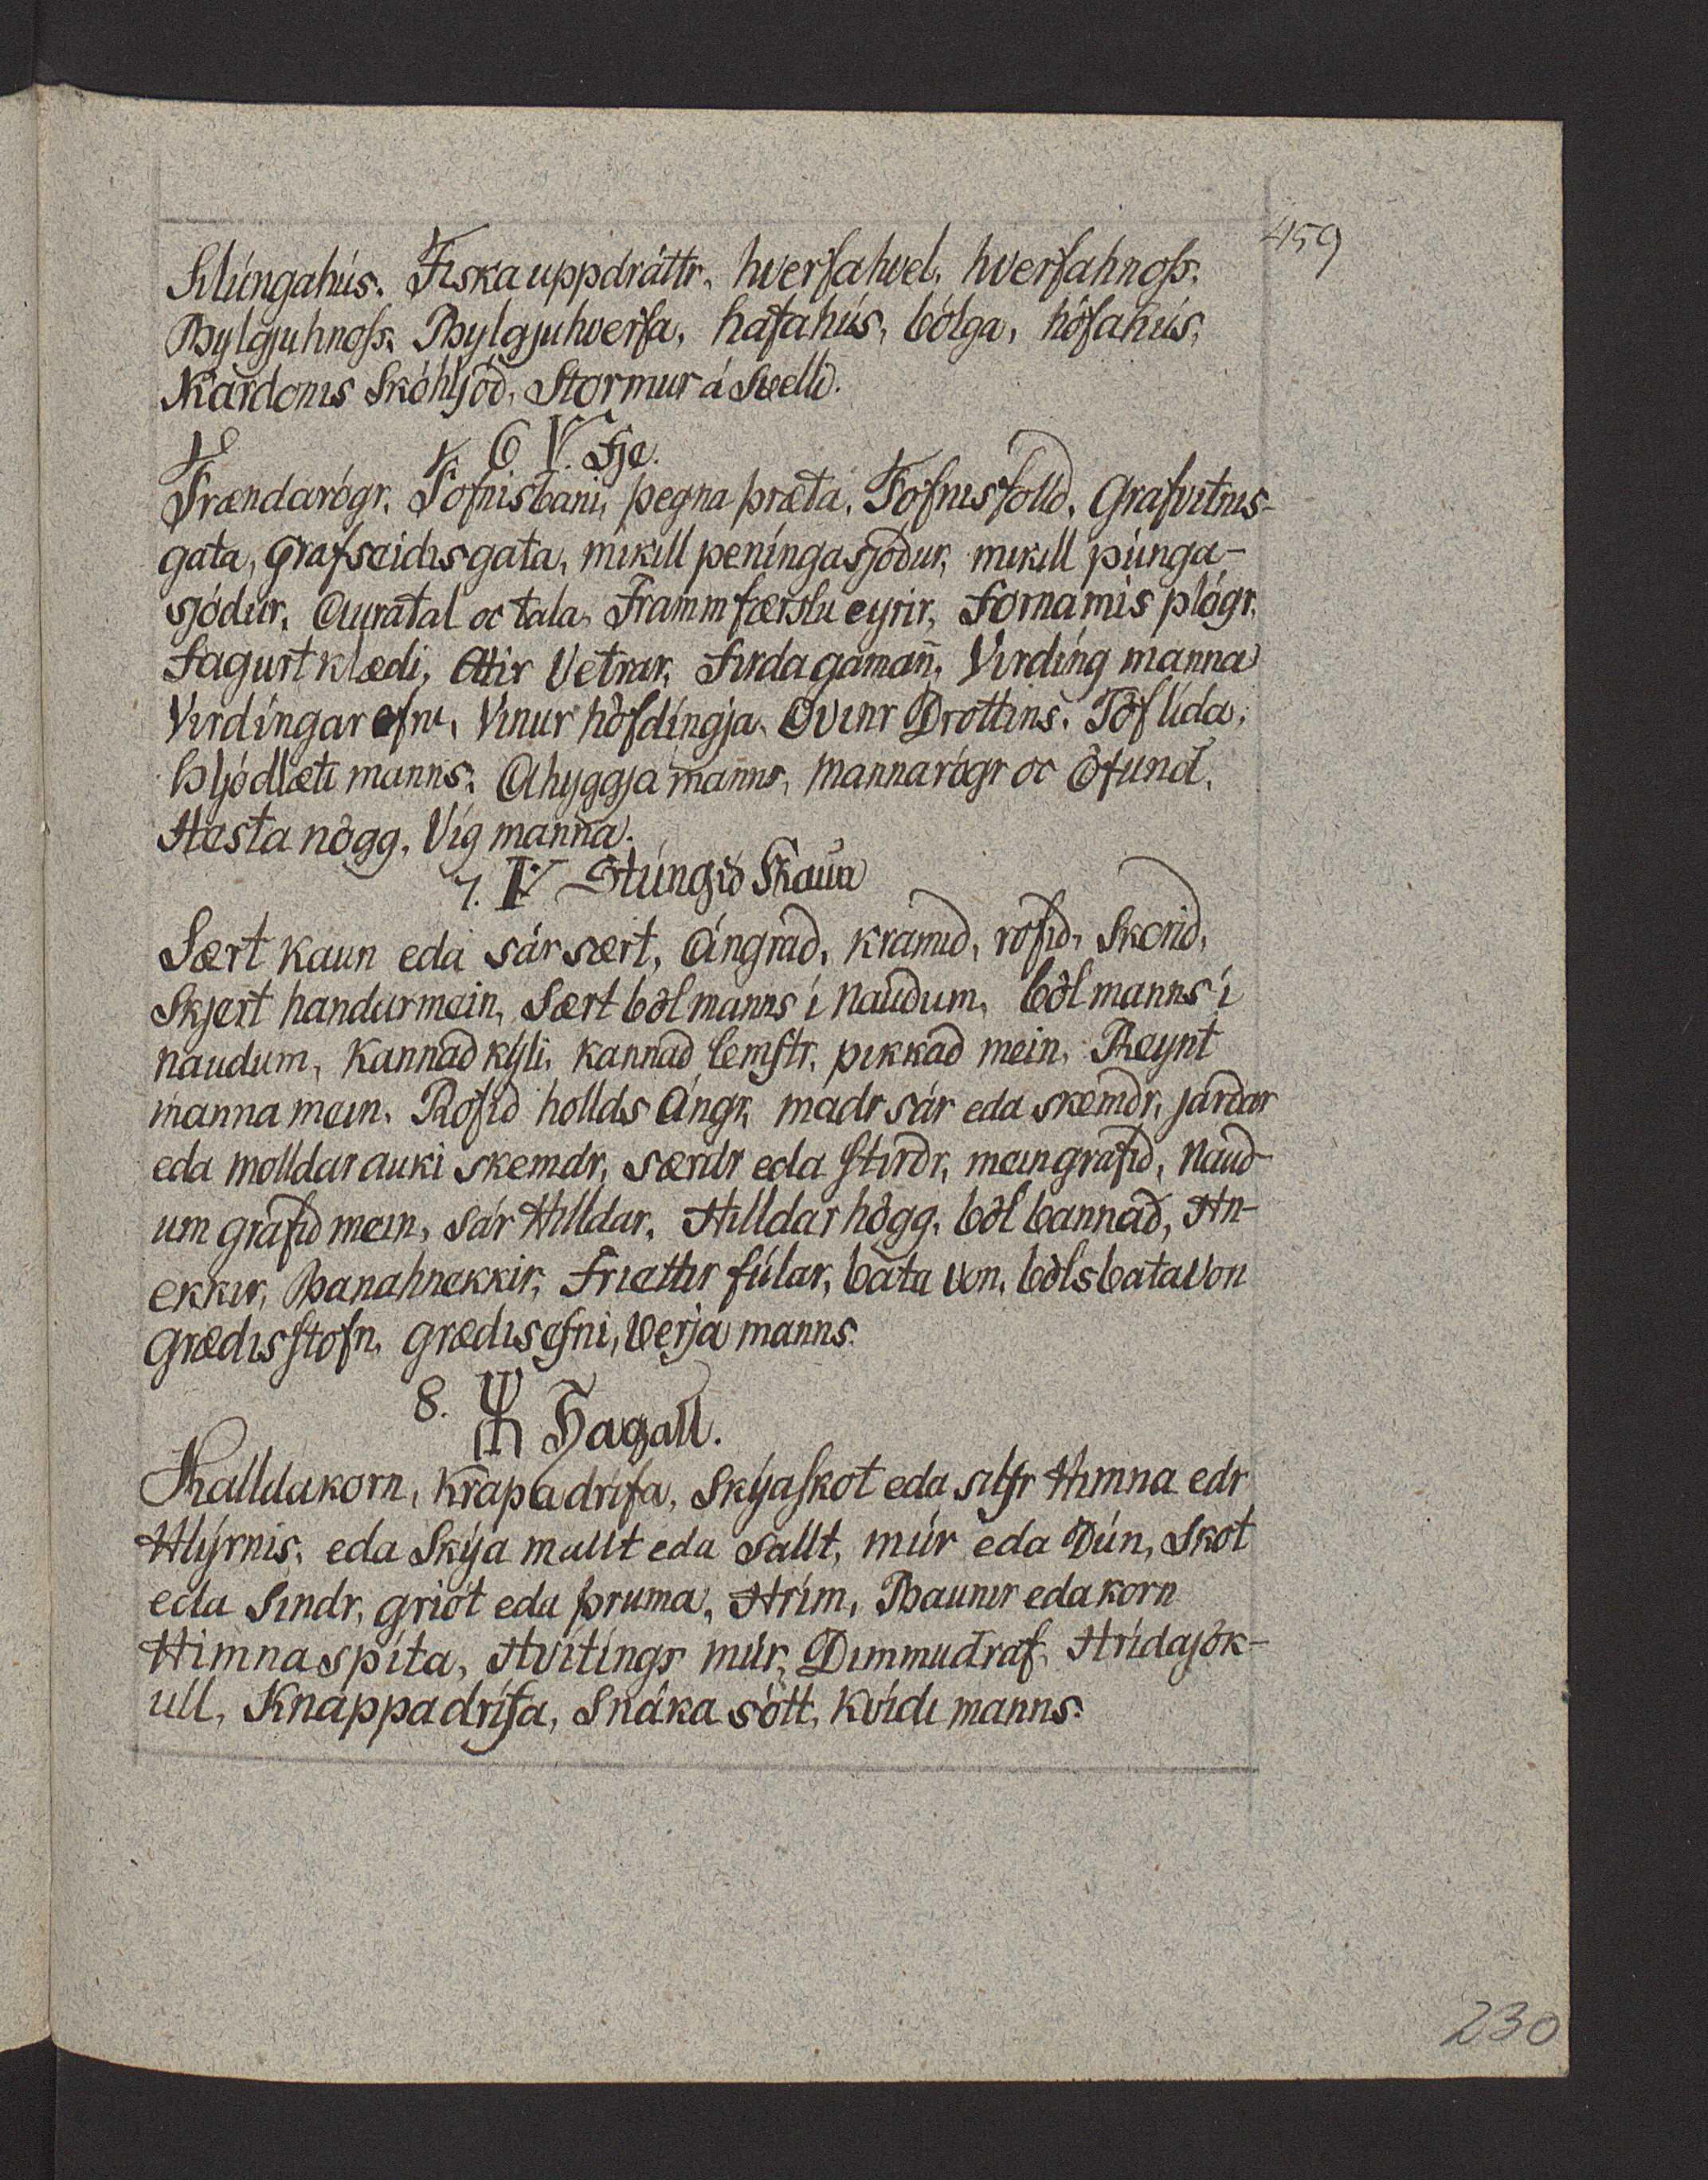 459
Silúngahús. Fiska uppdráttr, hverfahvel, hverfahnoss.
Bylgjuhnoss. Bylgjuhverfa, hafahús, bólga, höfahús,
Kardonis Skóhljód, Stormur á Svelli.
6 ᚠ. Fje.
Frændarógr. Fofnisbani, þegna þræta. Fofnisfolld. Grafvitnis-
gata, Grafseidisgata, mikill peníngasjódur, mikill púnga-
sjódur. Auratal oc tala. Frammfærslu eyrir, Fornamis plógr.
Fagurt klædi, Atir Vetrar, Firda gaman̄, Virdíng manna
Virdíngar efni, Vinur höfdíngja. Ovinr Drottins. Töf lída.
hljódlæti manns. Ahyggja manns, mannarógr oc öfund.
Hesta nögg. Víg manna.
7. Stúngid Kaun
Sært kaun eda sár sært, ángrad, kramid, rofid, skerid,
Skjert handarmein, Sært böl manns í naudum, böl manns í
naudum, kannad kýli, kannad lemstr. pikkad mein. Reynt
manna mein. Rofid hollds ángr, madr sár eda skemdr, jardar
eda molldar auki skemdr, særdr eda stirdr, meingrafid, naud-
um grafid mein, sár Hilldar. Hilldar högg. böl bannad, Hn-
ekkir, Banahnekkir, Friettir fúlar, bata von, bölsbatavon
Grædisstofn, grædisefni, verja manns.
8. Hagall.
Kalldakorn, Krapadrífa, Skýaskot eda silfr Himna edr
Hlýrnis. eda Skýa mallt eda sallt, múr eda Dún, Skot
eda Sindr, griót eda þruma, Hrím, Baunir eda korn
Himnaspíta, Hvítíngs múr, Dimmudraf. Hridajök-
ull, Knappadrífa, Snáka sótt, Kvídi manns.
230